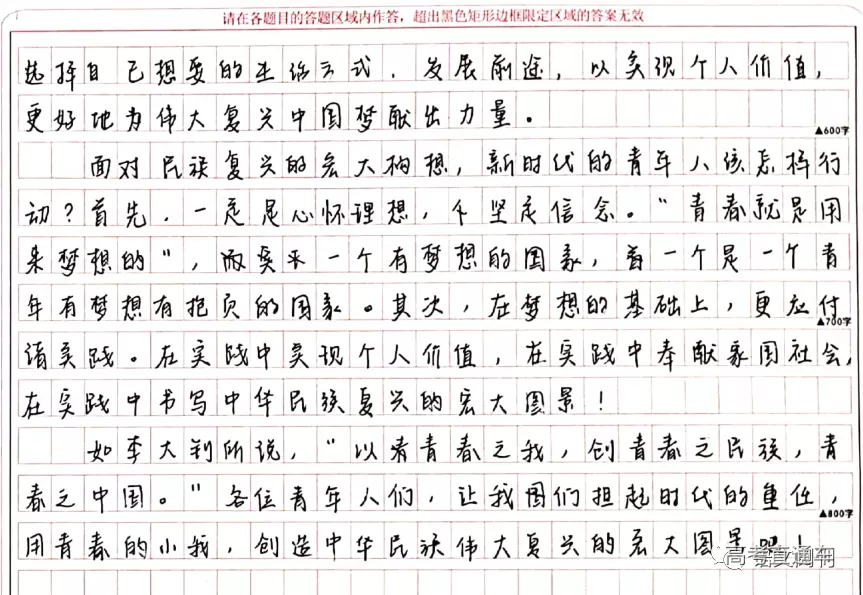 请在各题目的答题区域内作答，超出黑色矩形边框限定区域的答案无效
选择自己想要的生活方式，发展前途，以实现个人价值，
更好地为伟大复兴中国梦献出力量。
▲600字
面对民族复兴的宏大构想，新时代的青年人该怎样行
动？首先，一定是心怀理想，个坚定信念。“青春就是用
来梦想的”，而实乎一个有梦想的国家，首一个是一个青
年有梦想有抱负的国家。其次，在梦想的基础上，更应付
▲700字
诸实践。在实践中实现个人价值，在实践中奉献家国社会，
在实践中书写中华民族复兴的宏大图景！
如李大钊所说，“以青青春之我，创青春之民族，青
春之中国。”各位青年人们，让我们担起时代的重任，
▲800字
用青春的小我，创造中华民族伟大复兴的宏大图景吧！
高考直通车